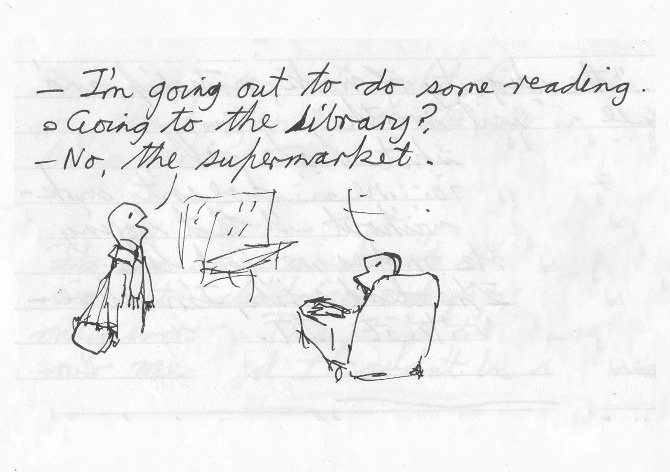 — I'm going out to do some reading.
▫ Going to the library?,
— No, the supermarket.